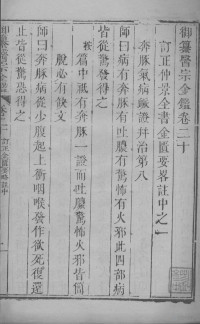 御纂醫宗金鑑卷二十
訂正仲景全書金匱要略註中之一
奔豚氣病脈證并治第八
師曰病有奔豚有吐膿有驚怖有火邪此四部病
皆從驚發得之
按篇中祗有奔豚一證而吐膿驚怖火邪皆簡
脫必有缺文
師曰奔豚病從少腹起上衝咽喉發作欲死復還
止皆從驚恐得之